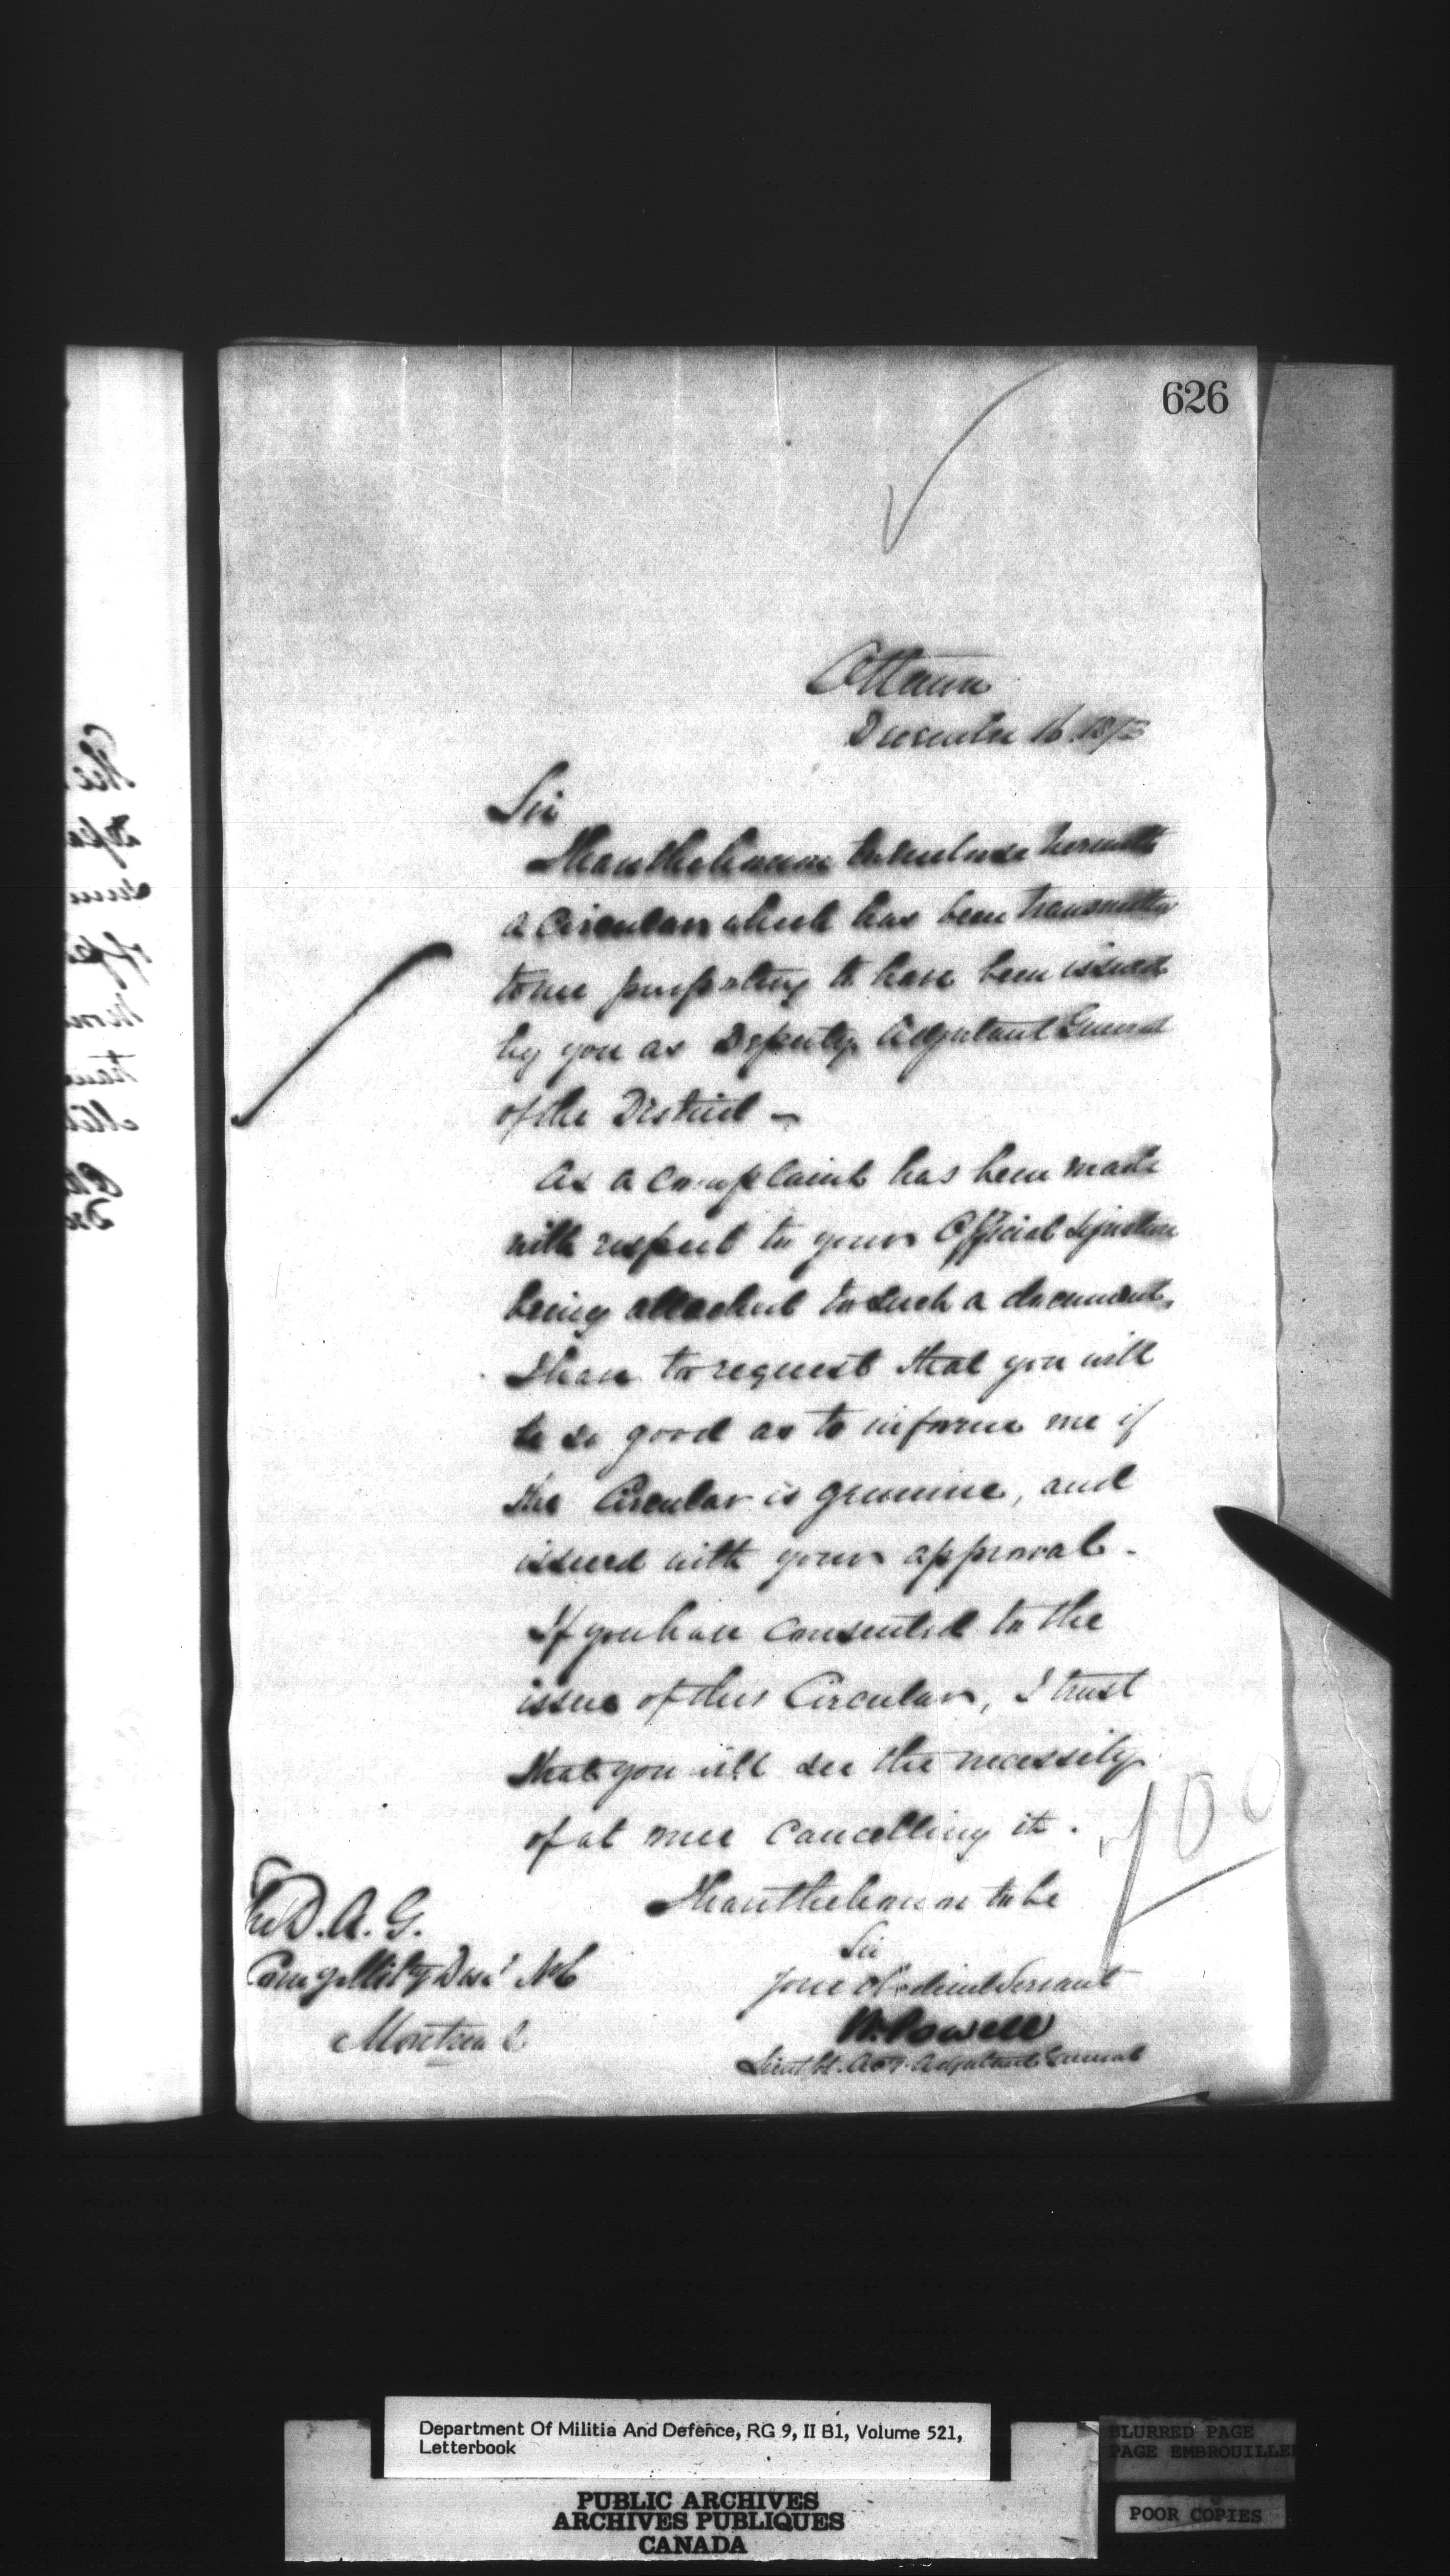 626
Ottawa
December 16 1873
Sir
I have the honour to enclose herewith
a Circular which has been transmitted
to me purporting to have been issued
by you as Deputy Adjutant General
of the District -
As a complaint has been made
with respect to your Official Signature
being attached to such a document,
I have to request that you will
be so good as to inform me if
the Circular is genuine, and
issued with your approval.
If you have consented to the
issue of this Circular, I trust
that you will see the necessity
of at once cancelling it.
I have the honour to be
Sir
Your Obedient Servant
W. Powell
Lieut Col. Actg. Adjutant General
The D. A. G.
Comg Milty Dist No 6
Montreal
700
Department Of Militia And Defence, RG 9, II B1, Volume 521,
Letterbook
PUBLIC ARCHIVES
ARCHIVES PUBLIQUES
CANADA
BLURRED PAGE
PAGE EMBROUILLE
POOR COPIES